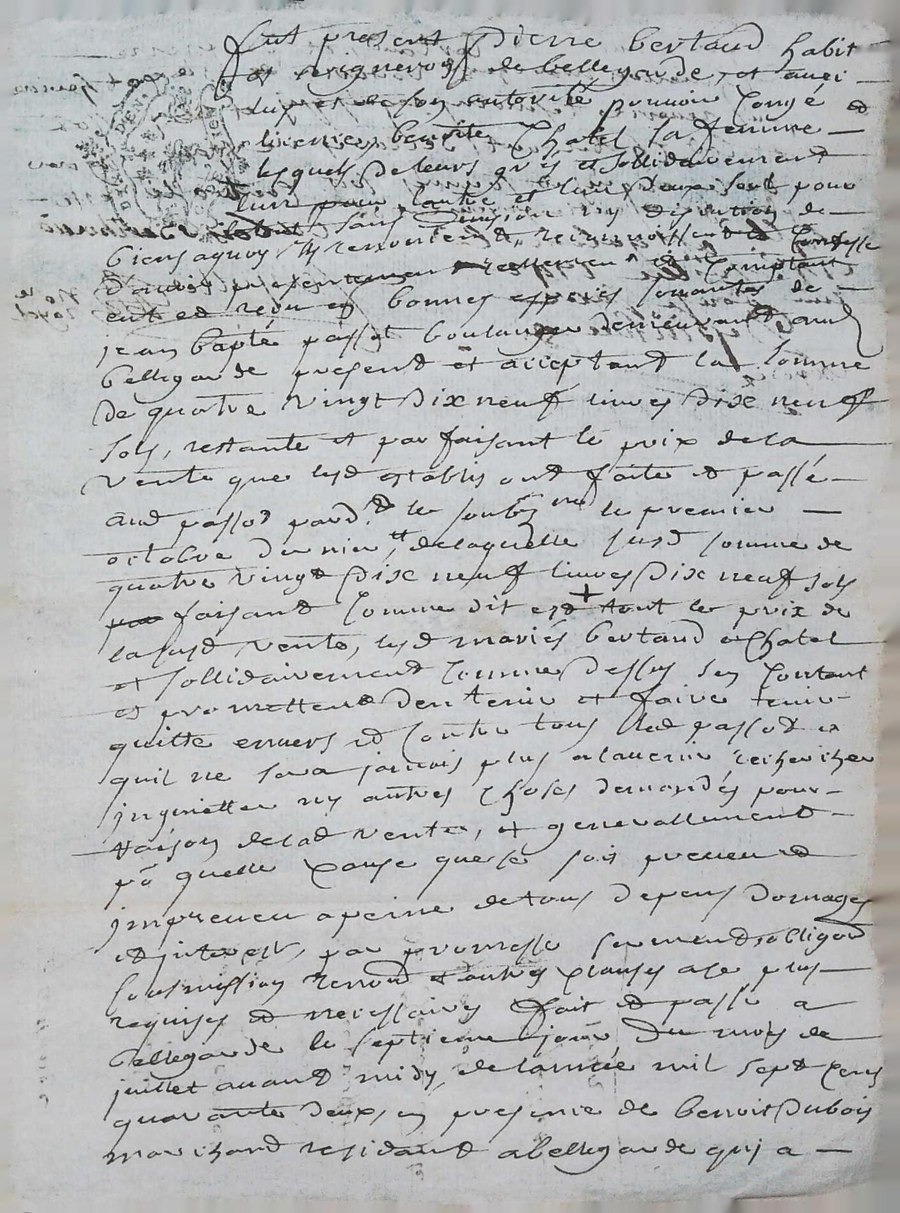 fut present Pierre bertaud habit
et vigneron de bellegarde, et avec
luy et de son autorité pouvoir Congé et
licence benoite Chatel sa femme
lesquels de leurs gré et sollidairement
lun pour lautre et lun deux seul pour
sans division ny discution de
biens aquoy ils renoncent, reconnoissent et Confesse
d'avoir presentement reellement et Comptant
eut et receu en bonnes especes sonantes de
jean bapte passot boulanger demeurant aud
bellegarde present et acceptant la somme
de quatre vingt Dix neuf livres Dix neuf
sols, restante et parfaisant le prix de la
vente que lesd establis ont faite et passé
aud passot pard.t le soubz.né le premier
octobre dernier de laquelle susd somme de
quatre vingt Dix neuf livres Dix neuf sols
faisant Comme dit est + tout le prix de
la susd vente, lesd mariés bertaud et Chatel
et sollidairement Comme Dessus sen Contant
et promettent d'en tenir et faire tenir
quitte envers et Contre tous led passot et
quil ne sera jamais plus alavenir recherché
inquietter ny autres Choses demandés pour
raison de lad vente, et generallement
p.r quelle Cause que se soit preveu et
impreveu a peine de tous depens domages
et interest, par promesse serment obligaon
soumission renon et autres Clauses ace plus
requises et necessaires fait et passé a
bellegarde le septieme jour Du mois de
juillet avant midy, de lannée mil sept Cens
quarante deux, en presence de benoit Dubois
marchand residant a bellegarde qui a